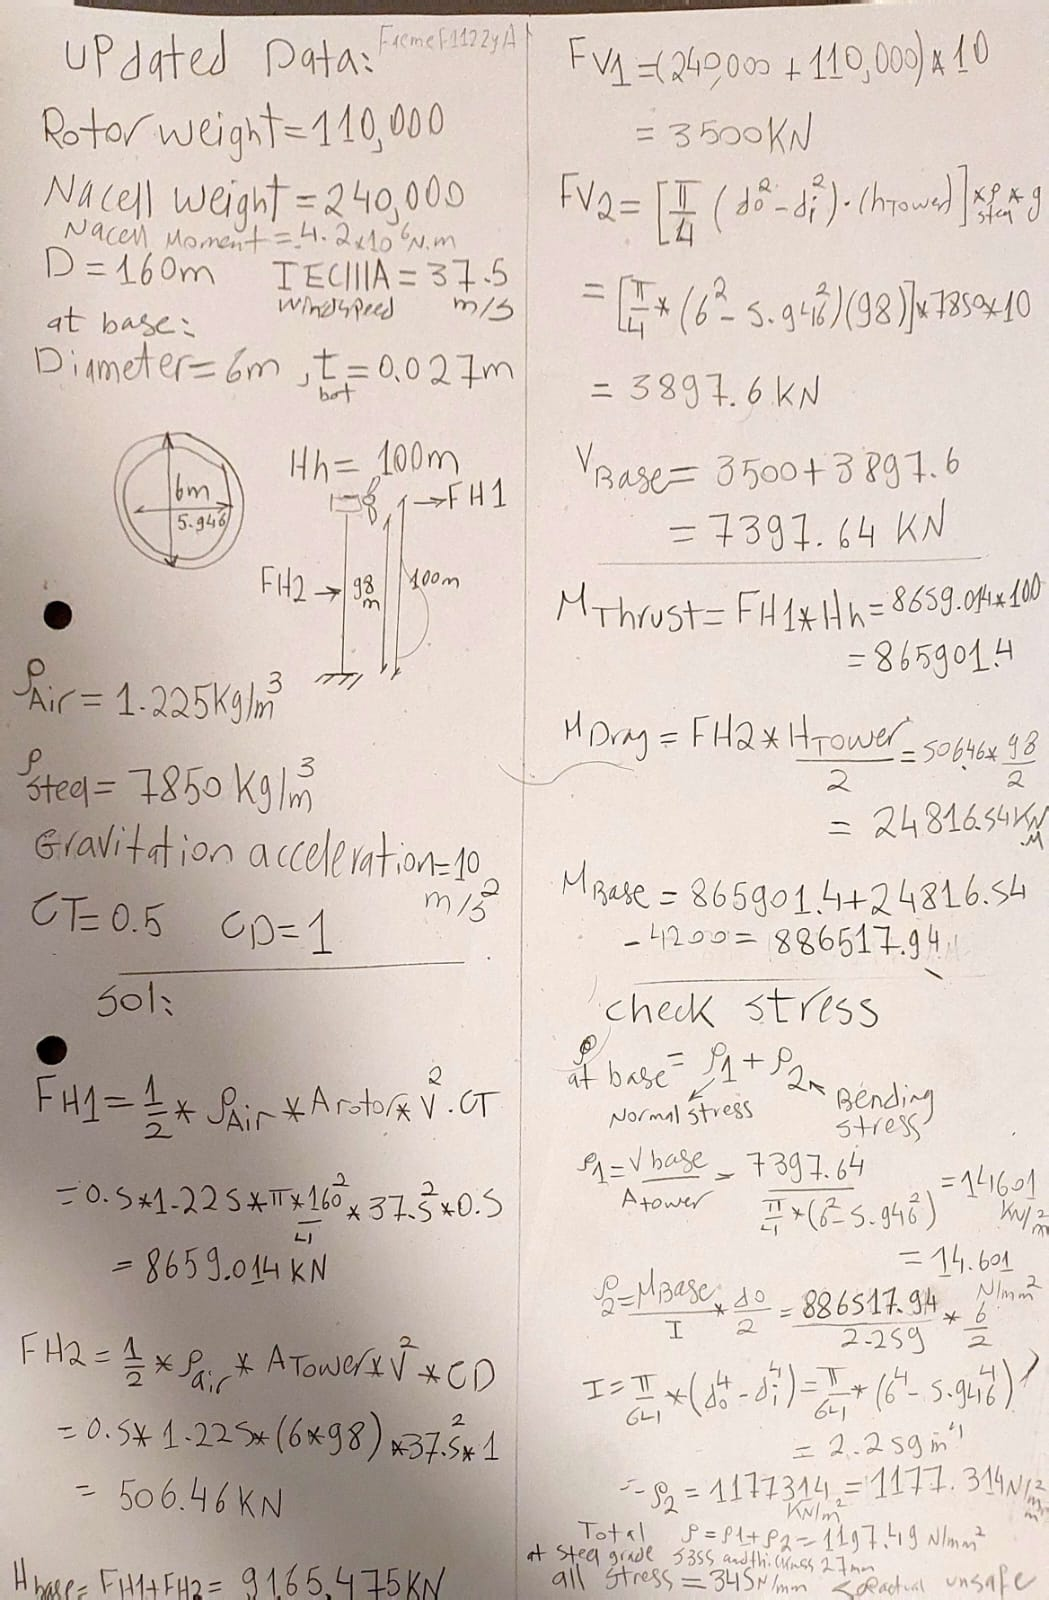 Updated Data:
Rotor weight=110,000
Nacell weight=240,000
Nacell Moment=-4.2x10⁶N.m
D=160m IECIIIA=37.5
windspeed m/s
at base:
Diameter=6m, t=0.027m
bot
6m
5.946
Hh= 100m
→FH1
FH2→
98
m
100m
ρAir=1.225Kg/m³
ρsteel=7850 kg/m³
Gravitation acceleration=10
m/s²
CT=0.5 CD=1
Sol:
FH1=1/2*ρAir*Arotor*V².CT
=0.5*1.225*π*160²/4*37.5²*0.5
=8659.014 KN
FH2=1/2*ρair*ATower*V²*CD
=0.5*1.225*(6*98)*37.5²*1
= 506.46 KN
Hbase=FH1+FH2= 9165.475KN
FV1=(240,000+110,000)*10
= 3500KN
FV2=[π/4(do²-di²).(hTower)]*ρsteel*g
=[π/4*(6²-5.946²)(98)]*7850*10
= 3897.6 KN
VBase= 3500+3897.6
= 7397.64 KN
MThrust=FH1*Hh=8659.014*100
=865901.4
MDrag=FH2*HTower/2=506.46*98/2
= 24816.54KN
.M
MBase=865901.4+24816.54
-4200=886517.94
check stress
ρat base=ρ1+ρ2
Normal stress
Bending
stress
ρ1=Vbase/Atower=7397.64/(π/4*(6²-5.946²))=14601
KN/m²
=14.601
N/mm²
ρ2=MBase/I*do/2=886517.94/2.259*6/2
I=π/64*(do⁴-di⁴)=π/64*(6⁴-5.946⁴)
= 2.259m⁴
ρ2=1177314=1177.314N/mm²
KN/m²
Total ρ=ρ1+ρ2=1197.49 N/mm²
at steel grade S355 and thickness 27mm
all stress=345N/mm unsafe